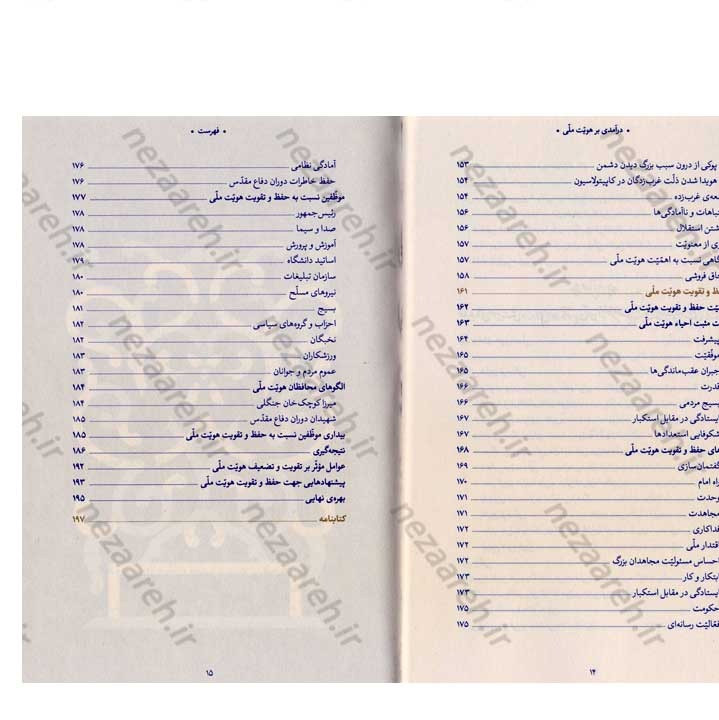 • درآمدی بر هویّت ملّی •
پوکی از درون سبب بزرگ دیدن دشمن ۱۵۳
هویدا شدن ذلّت غرب‌زدگان در کاپیتولاسیون ۱۵۴
غرب‌زده ۱۵۴
و ناآمادگی‌ها ۱۵۶
استقلال ۱۵۶
از معنویّت ۱۵۷
نسبت به اهمّیّت هویّت ملّی ۱۵۷
فروشی ۱۵۸
و تقویت هویّت ملّی ۱۶۱
حفظ و تقویت هویّت ملّی ۱۶۲
مثبت احیاء هویّت ملّی ۱۶۳
پیشرفت ۱۶۴
موفّقیّت ۱۶۵
جبران عقب‌ماندگی‌ها ۱۶۵
قدرت ۱۶۶
بسیج مردمی ۱۶۶
ایستادگی در مقابل استکبار ۱۶۷
شکوفایی استعدادها ۱۶۷
حفظ و تقویت هویّت ملّی ۱۶۸
گفتمان‌سازی ۱۶۹
راه امام ۱۷۰
وحدت ۱۷۱
مجاهدت ۱۷۱
فداکاری ۱۷۲
اقتدار ملّی ۱۷۲
احساس مسئولیّت مجاهدان بزرگ ۱۷۲
ابتکار و کار ۱۷۳
ایستادگی در مقابل استکبار ۱۷۳
حکومت ۱۷۵
فعّالیّت رسانه‌ای ۱۷۵
۱۴
• فهرست •
آمادگی نظامی ۱۷۶
حفظ خاطرات دوران دفاع مقدّس ۱۷۶
موظّفین نسبت به حفظ و تقویت هویّت ملّی ۱۷۷
رئیس‌جمهور ۱۷۸
صدا و سیما ۱۷۸
آموزش و پرورش ۱۷۸
اساتید دانشگاه ۱۷۹
سازمان تبلیغات ۱۸۰
نیروهای مسلّح ۱۸۰
بسیج ۱۸۱
احزاب و گروه‌های سیاسی ۱۸۲
نخبگان ۱۸۲
ورزشکاران ۱۸۳
عموم مردم و جوانان ۱۸۳
الگوهای محافظان هویّت ملّی ۱۸۴
میرزا کوچک‌خان جنگلی ۱۸۴
شهیدان دوران دفاع مقدّس ۱۸۵
بیداری موظّفین نسبت به حفظ و تقویت هویّت ملّی ۱۸۵
نتیجه‌گیری ۱۸۶
عوامل مؤثّر بر تقویت و تضعیف هویّت ملّی ۱۹۲
پیشنهادهایی جهت حفظ و تقویت هویّت ملّی ۱۹۳
بهره‌ی نهایی ۱۹۵
کتابنامه ۱۹۷
۱۵
nezaareh.ir
nezaareh.ir
nezaareh.ir
nezaareh.ir
nezaareh.ir
nezaareh.ir
nezaareh.ir
nezaareh.ir
nezaareh.ir